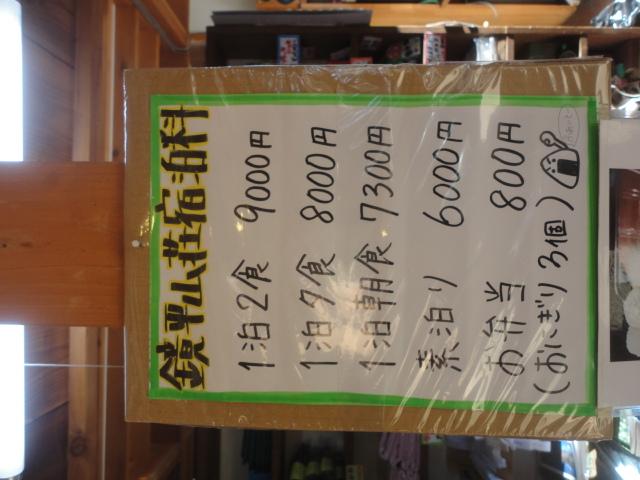 鏡平山荘宿泊料
1泊2食 9000円
1泊夕食 8000円
1泊朝食 7300円
素泊り 6000円
お弁当 800円
(おにぎり3個)